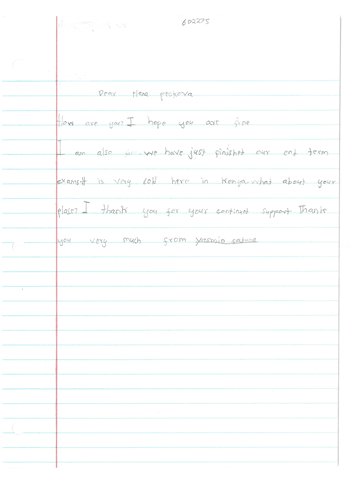 602275
Dear
How are you? I hope you are fine
I am also ... we have just finished our end term
exams. It is very cold here in Kenya. what about your
place? I thank you for your continent support Thank
you very much from